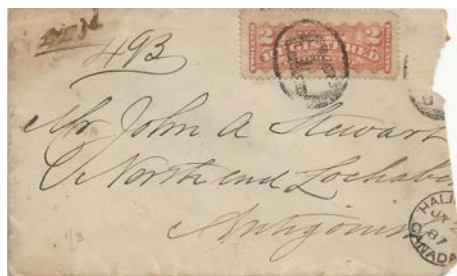 493
2 REGISTERED 2
Mr John A Stewart
North end Lochabe
Antigonis
HALI
87
CANADA
1/3